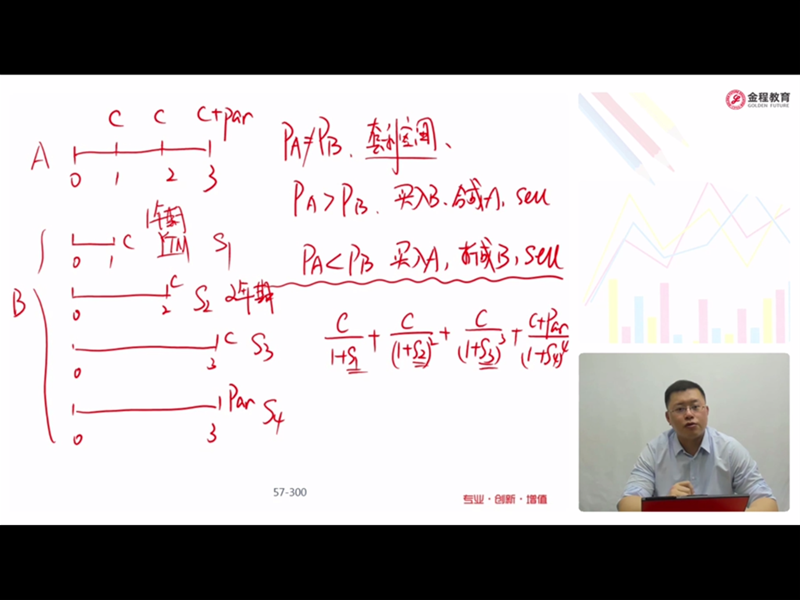 金程教育
GOLDEN FUTURE
C C C+par
A
0 1 2 3
PA≠PB、套利空间、
PA>PB、买入B、合成A, sell
PA<PB 买入A, 拆成B, sell
1年期
C YTM S1
0 1
B
C S2 2年期
0 2
C S3
0 3
Par S4
0 3
C/(1+S1) + C/(1+S2)² + C/(1+S3)³ + (C+Par)/(1+S4)⁴
57-300
专业·创新·增值